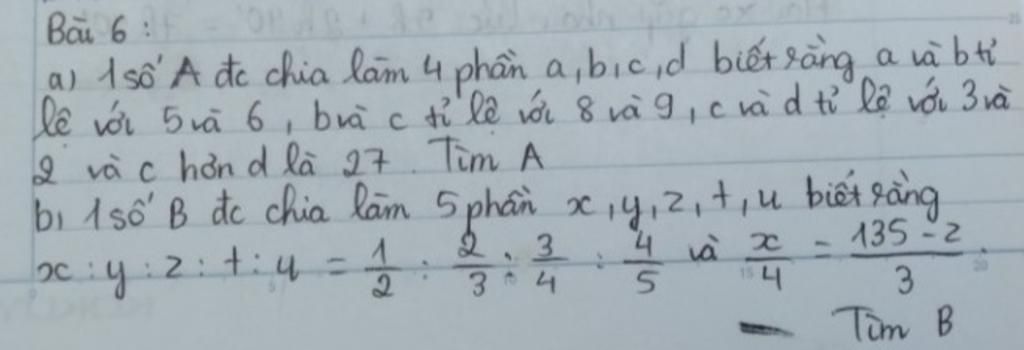 Bài 6 :
a) 1 số A đc chia làm 4 phần a, b, c, d biết rằng a và b tỉ
lệ với 5 và 6, b và c tỉ lệ với 8 và 9, c và d tỉ lệ với 3 và
2 và c hơn d là 27. Tìm A
b) 1 số B đc chia làm 5 phần x, y, z, t, u biết rằng
x : y : z : t : u = 1/2 : 2/3 : 3/4 : 4/5 và x/4 = (135 - z)/3 .
Tìm B